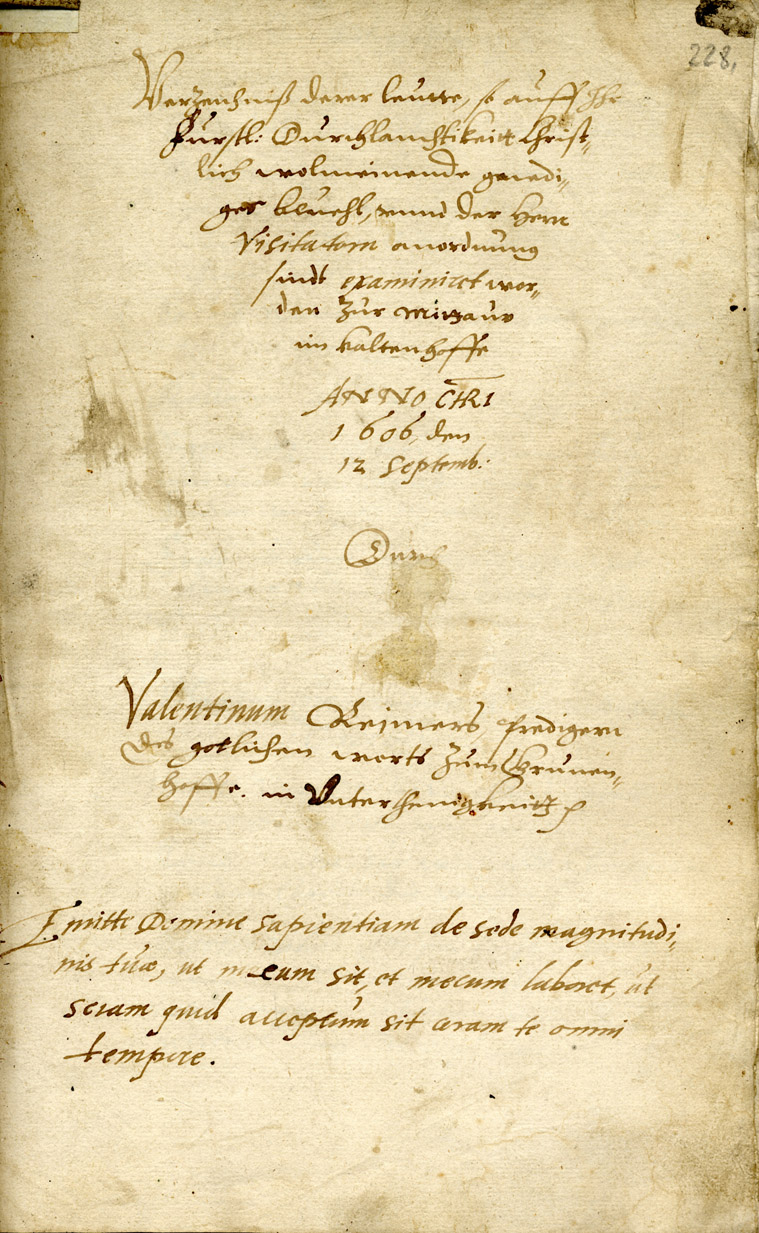 228.
Verzeichniß derer leutte, so auff Ihr
Furstl: Durchlauchtikeitt Christ„
lich wolmeinende gnedi„
ges beuehl, vnnd der Hern
Visitatorn anordnung
sindt examiniret wor„
den Zur Mitzauw
im kaltenhoffe
ANNO CHRI
1606, den
12 Septemb:
Durch
Valentinum Reimers, Predigern
des gotlichen worts Zum Grunen„
hoffe. in Vnterthenigkeitt
Emitte Domine sapientiam de sede magnitudi„
nis tuæ, ut mecum sit, et mecum laboret, ut
sciam quid acceptum sit coram te omni
tempore.